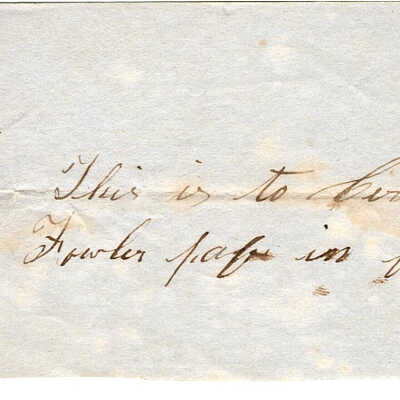 This is to
Fowler pass in